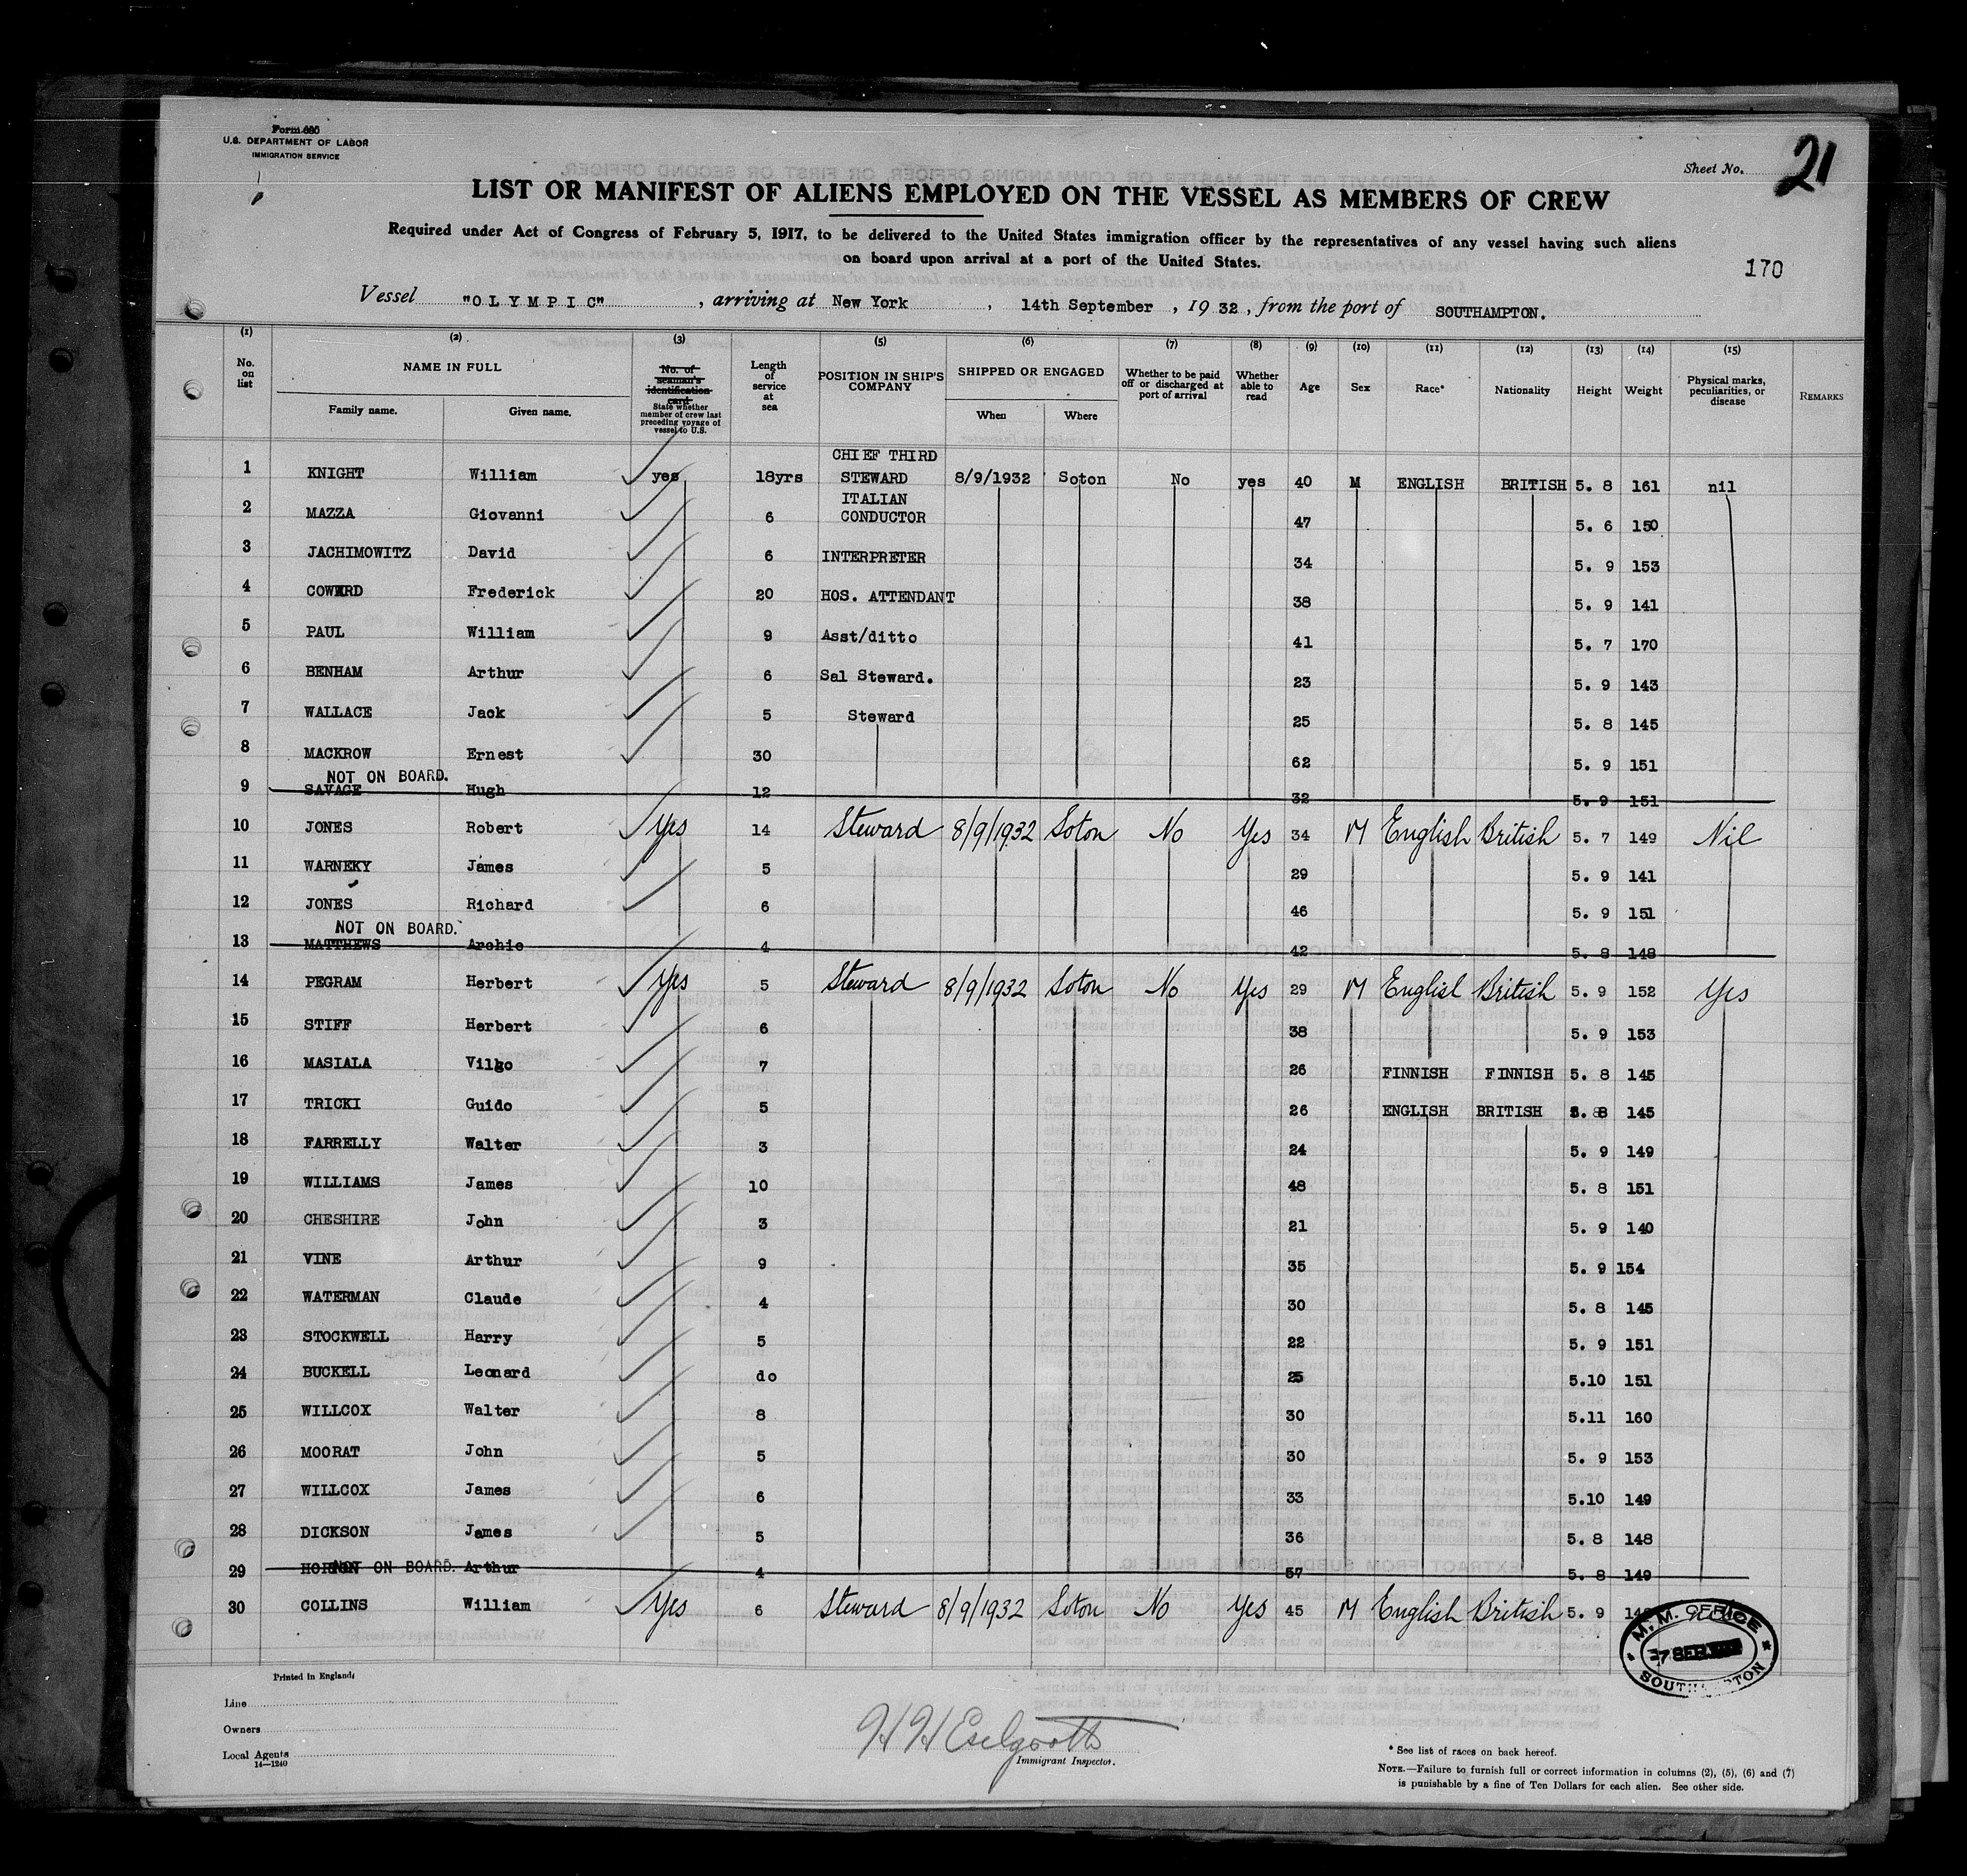 Form 680
U.S. DEPARTMENT OF LABOR
IMMIGRATION SERVICE
Sheet No. 21
LIST OR MANIFEST OF ALIENS EMPLOYED ON THE VESSEL AS MEMBERS OF CREW
Required under Act of Congress of February 5, 1917, to be delivered to the United States immigration officer by the representatives of any vessel having such aliens
on board upon arrival at a port of the United States.
170
Vessel "OLYMPIC", arriving at New York, 14th September, 1932, from the port of SOUTHAMPTON.
(1) (2) (3) (5) (6) (7) (8) (9) (10) (11) (12) (13) (14) (15)
No. on list NAME IN FULL Family name. Given name. No. of seaman's identification card State whether member of crew last preceding voyage of vessel to U.S. Length of service at sea POSITION IN SHIP'S COMPANY SHIPPED OR ENGAGED When Where Whether to be paid off or discharged at port of arrival Whether able to read Age Sex Race* Nationality Height Weight Physical marks, peculiarities, or disease REMARKS
1 KNIGHT William yes 18yrs CHIEF THIRD STEWARD 8/9/1932 Soton No yes 40 M ENGLISH BRITISH 5. 8 161 nil
2 MAZZA Giovanni 6 ITALIAN CONDUCTOR 47 5. 6 150
3 JACHIMOWITZ David 6 INTERPRETER 34 5. 9 153
4 COWARD Frederick 20 HOS. ATTENDANT 38 5. 9 141
5 PAUL William 9 Asst/ditto 41 5. 7 170
6 BENHAM Arthur 6 Sal Steward. 23 5. 9 143
7 WALLACE Jack 5 Steward 25 5. 8 145
8 MACKROW Ernest 30 62 5. 9 151
NOT ON BOARD.
9 SAVAGE Hugh 12 32 5. 9 151
10 JONES Robert Yes 14 Steward 8/9/1932 Soton No Yes 34 M English British 5. 7 149 Nil
11 WARNEKY James 5 29 5. 9 141
12 JONES Richard 6 46 5. 9 151
NOT ON BOARD.
13 MATTHEWS Archie 4 42 5. 8 148
14 PEGRAM Herbert Yes 5 Steward 8/9/1932 Soton No Yes 29 M English British 5. 9 152 Yes
15 STIFF Herbert 6 38 5. 9 153
16 MASIALA Vilgo 7 26 FINNISH FINNISH 5. 8 145
17 TRICKI Guido 5 26 ENGLISH BRITISH 5. 8 145
18 FARRELLY Walter 3 24 5. 9 149
19 WILLIAMS James 10 48 5. 8 151
20 CHESHIRE John 3 21 5. 9 140
21 VINE Arthur 9 35 5. 9 154
22 WATERMAN Claude 4 30 5. 8 145
23 STOCKWELL Harry 5 22 5. 9 151
24 BUCKELL Leonard do 25 5.10 151
25 WILLCOX Walter 8 30 5.11 160
26 MOORAT John 5 30 5. 9 153
27 WILLCOX James 6 33 5.10 149
28 DICKSON James 5 36 5. 8 148
29 NOT ON BOARD. Arthur 4 57 5. 8 149
30 COLLINS William Yes 6 Steward 8/9/1932 Soton No Yes 45 M English British 5. 9
M.M. OFFICE
SOUTHAMPTON
Printed in England
Line
Owners
Local Agents
14—1240
Immigrant Inspector.
* See list of races on back hereof.
NOTE.—Failure to furnish full or correct information in columns (2), (5), (6) and (7)
is punishable by a fine of Ten Dollars for each alien. See other side.